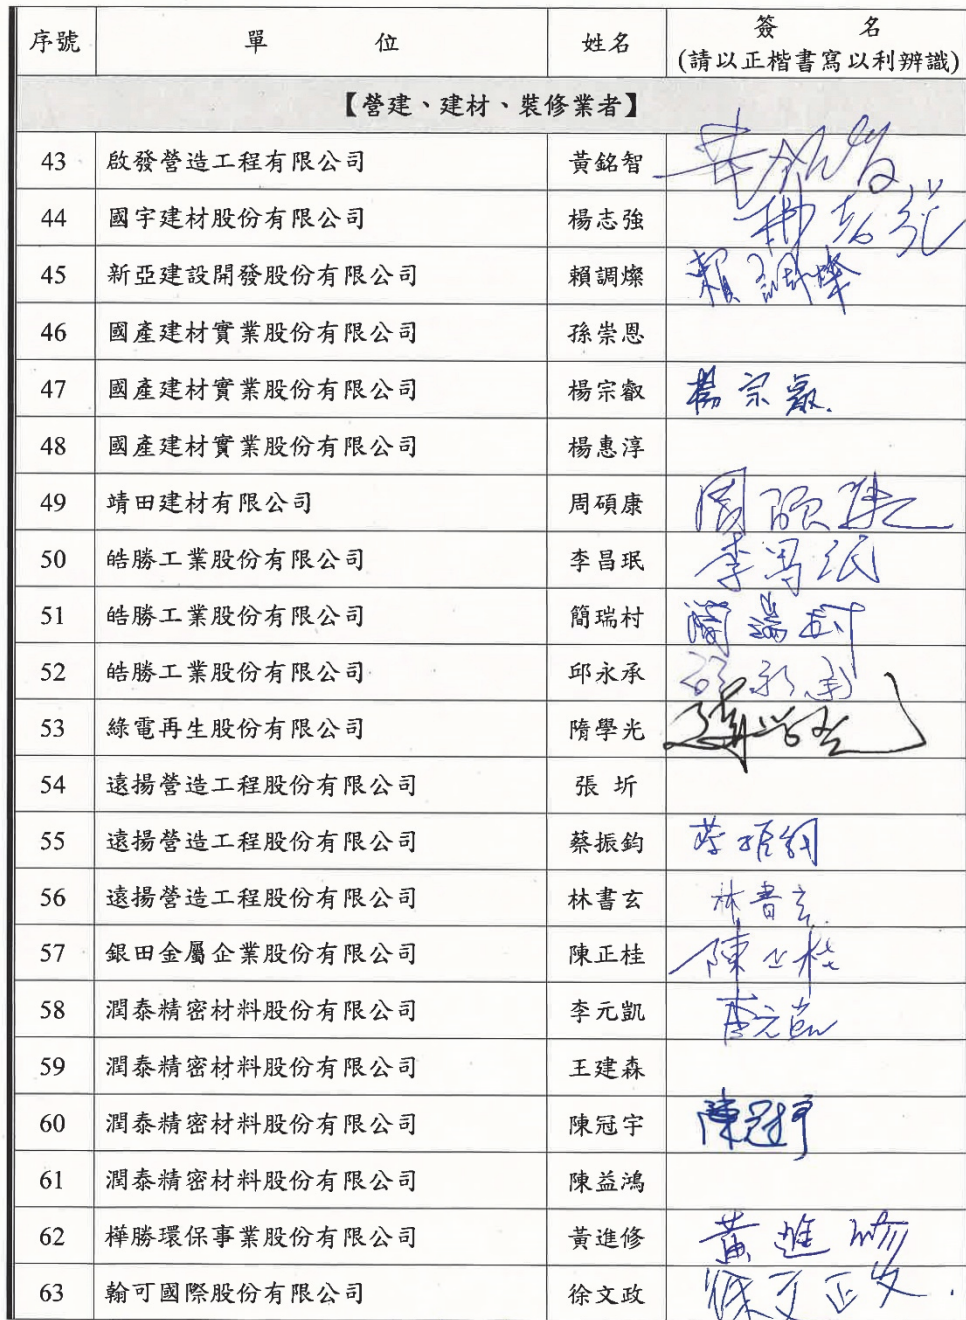 序號 單位 姓名 簽名
(請以正楷書寫以利辨識)
【營建、建材、裝修業者】
43 啟發營造工程有限公司 黃銘智
44 國宇建材股份有限公司 楊志強 楊志強
45 新亞建設開發股份有限公司 賴調燦 賴調燦
46 國產建材實業股份有限公司 孫崇恩
47 國產建材實業股份有限公司 楊宗叡 楊宗叡
48 國產建材實業股份有限公司 楊惠淳
49 靖田建材有限公司 周碩康 周碩康
50 皓勝工業股份有限公司 李昌珉 李昌珉
51 皓勝工業股份有限公司 簡瑞村 簡瑞村
52 皓勝工業股份有限公司 邱永承
53 綠電再生股份有限公司 隋學光
54 遠揚營造工程股份有限公司 張圻
55 遠揚營造工程股份有限公司 蔡振鈞 蔡振鈞
56 遠揚營造工程股份有限公司 林書玄 林書玄
57 銀田金屬企業股份有限公司 陳正桂 陳正桂
58 潤泰精密材料股份有限公司 李元凱 李元凱
59 潤泰精密材料股份有限公司 王建森
60 潤泰精密材料股份有限公司 陳冠宇 陳冠宇
61 潤泰精密材料股份有限公司 陳益鴻
62 樺勝環保事業股份有限公司 黃進修 黃進修
63 翰可國際股份有限公司 徐文政 徐文政